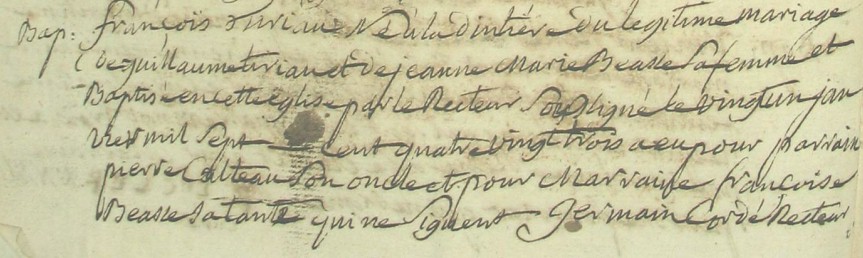 Bap: François Turiau Né a la dinhére du legitime mariage
de guillaume turiau et de jeanne Marie Beasse sa femme et
Baptisé en cette église par le Recteur Soussigné le vingt un jan
vier mil sept cent quatre vingt trois a eu pour parrain
pierre Colteau Son oncle et pour Marraine françoise
Beasse sa tante qui ne Signent Germain Cordé Recteur